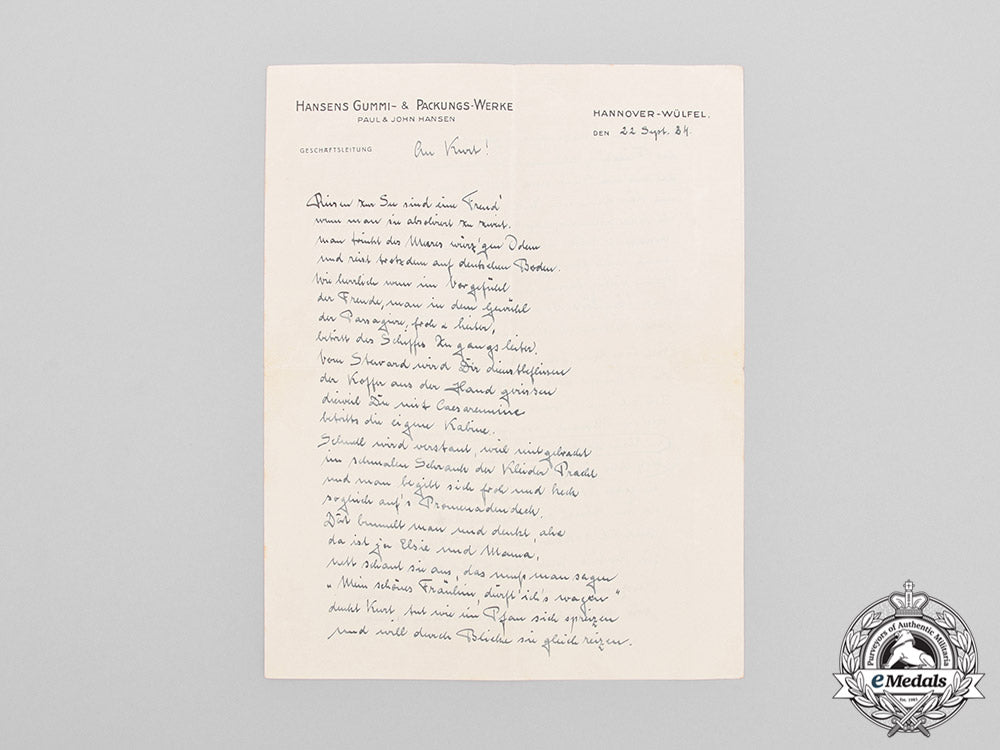 HANSENS GUMMI- & PACKUNGS-WERKE
PAUL & JOHN HANSEN
HANNOVER-WÜLFEL.
DEN 22 Sept. 24.
GESCHÄFTSLEITUNG
An Kurt!
Reisen zur See sind eine Freud'
wenn man sie absolviert zu zweit.
man trinkt des Meeres würz'gen Odem
und reist trotzdem auf deutschem Boden.
Wie herrlich wenn im Vorgefühl
der Freude, man in dem Gewühl
der Passagiere, froh u heiter,
betritt des Schiffes Zugangsleiter.
Vom Steward wird Dir dienstbeflissen
der Koffer aus der Hand gerissen
dieweil Du mit Caesarenmine
betrittst die eigene Kabine.
Schnell wird verstaut, weil mitgebracht
im schmalen Schrank der Kleider Pracht
und man begibt sich froh und keck
sogleich auf's Promenadendeck.
Dort bummelt man und denkt, aha
da ist ja Elsie und Mama,
nett schaut sie aus, das muß man sagen
"Mein schönes Fräulein, dürft' ich's wagen"
denkt Kurt, tut wie ein Pfau sich spreizen
und will durch Blicke sie gleich reizen.
Purveyors of Authentic Militaria
eMedals
Est. 1981